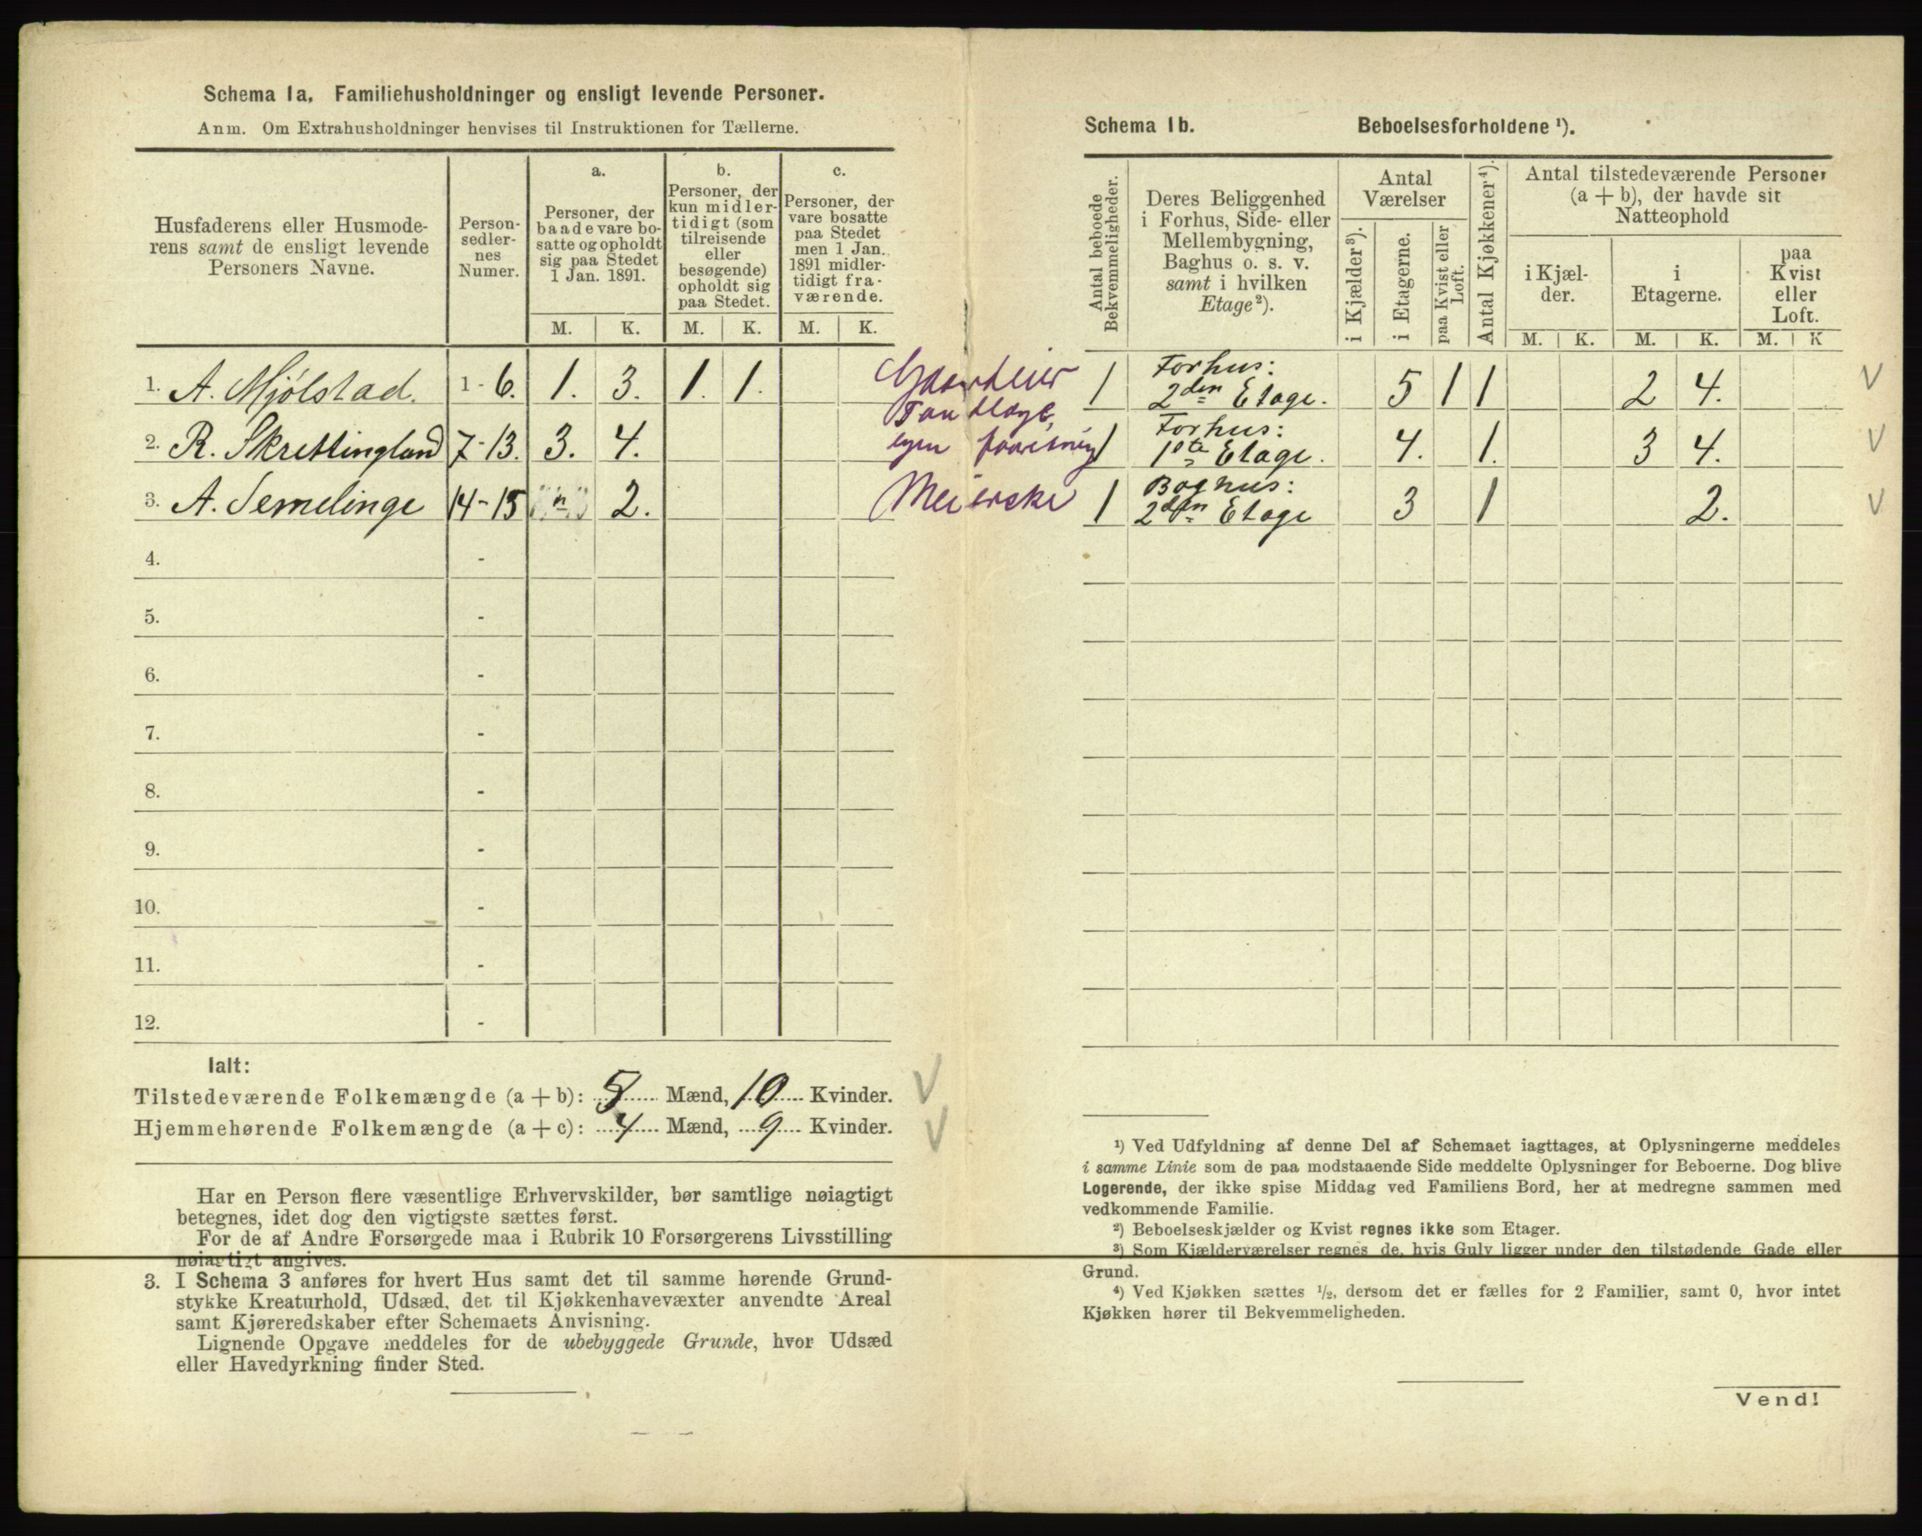 Schema 1a. Familiehusholdninger og ensligt levende Personer.
Anm. Om Extrahusholdninger henvises til Instruktionen for Tællerne.
Husfaderens eller Husmode-
rens samt de ensligt levende
Personers Navne.
Person-
sedler-
nes
Numer.
a.
Personer, der
baade vare bo-
satte og opholdt
sig paa Stedet
1 Jan. 1891.
b.
Personer, der
kun midler-
tidigt (som
tilreisende
eller
besøgende)
opholdt sig
paa Stedet.
c.
Personer, der
vare bosatte
paa Stedet
men 1 Jan.
1891 midler-
tidigt fra-
værende.
M. K. M. K. M. K.
1. A. Mjølstad. 1 - 6. 1. 3. 1. 1.
2. R. Skrettingland 7 - 13. 3. 4.
3. A. Semelinge 14 - 15 " 2.
4. -
5. -
6. -
7. -
8. -
9. -
10. -
11. -
12. -
Ialt:
Tilstedeværende Folkemængde (a + b): 5 Mænd, 10 Kvinder.
Hjemmehørende Folkemængde (a + c): 4 Mænd, 9 Kvinder.
Har en Person flere væsentlige Erhvervskilder, bør samtlige nøiagtigt
betegnes, idet dog den vigtigste sættes først.
For de af Andre Forsørgede maa i Rubrik 10 Forsørgerens Livsstilling
nøiagtigt angives.
3. I Schema 3 anføres for hvert Hus samt det til samme hørende Grund-
stykke Kreaturhold, Udsæd, det til Kjøkkenhavevæxter anvendte Areal
samt Kjøreredskaber efter Schemaets Anvisning.
Lignende Opgave meddeles for de ubebyggede Grunde, hvor Udsæd
eller Havedyrkning finder Sted.
Meierske
Schema 1b. Beboelsesforholdene ¹).
Antal beboede
Bekvemmeligheder.
Deres Beliggenhed
i Forhus, Side- eller
Mellembygning,
Baghus o. s. v.
samt i hvilken
Etage²).
Antal
Værelser
i Kjælder³).
i Etagerne.
paa Kvist eller
Loft.
Antal Kjøkkener⁴).
Antal tilstedeværende Personer
(a + b), der havde sit
Natteophold
i Kjæl-
der.
i
Etagerne.
paa
Kvist
eller
Loft.
M. K. M. K. M. K
1 Forhus:
2den Etage. 5 1 1 2 4.
1 Forhus:
1ste Etage. 4. 1. 3 4.
1 Baghus:
2den Etage 3 1 2.
¹) Ved Udfyldning af denne Del af Schemaet iagttages, at Oplysningerne meddeles
i samme Linie som de paa modstaaende Side meddelte Oplysninger for Beboerne. Dog blive
Logerende, der ikke spise Middag ved Familiens Bord, her at medregne sammen med
vedkommende Familie.
²) Beboelseskjælder og Kvist regnes ikke som Etager.
³) Som Kjælderværelser regnes de, hvis Gulv ligger under den tilstødende Gade eller
Grund.
⁴) Ved Kjøkken sættes ½, dersom det er fælles for 2 Familier, samt 0, hvor intet
Kjøkken hører til Bekvemmeligheden.
Vend!